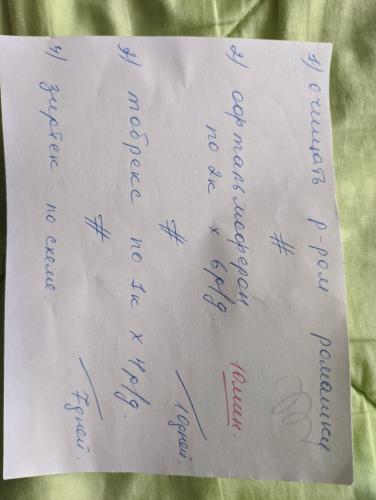 1) очищать р-ром ромашки
#
2) офтальмоферон
по 2к х 6р/д. 10мин.
# 10дней.
3) тобрекс по 1к х 4р/д.
# 7дней.
4) зиртек по схеме.